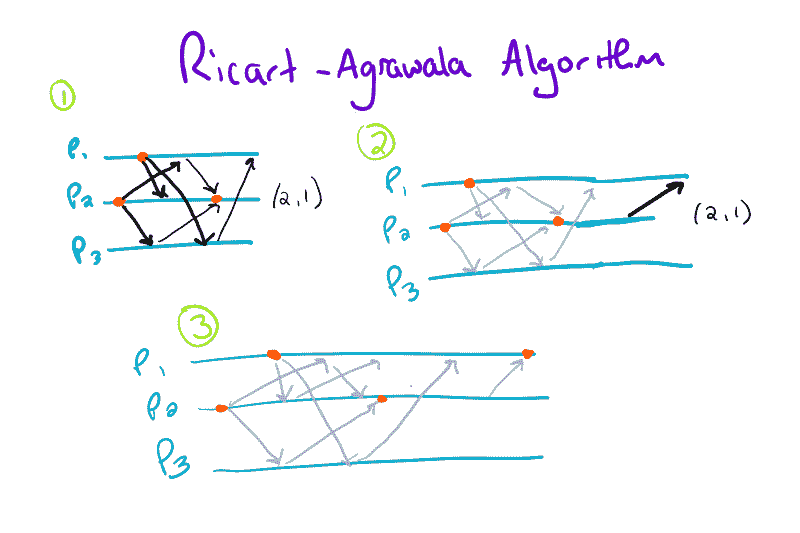 Ricart-Agrawala Algorithm
1
P1
P2
(2,1)
P3
2
P1
P2
(2,1)
P3
3
P1
P2
P3